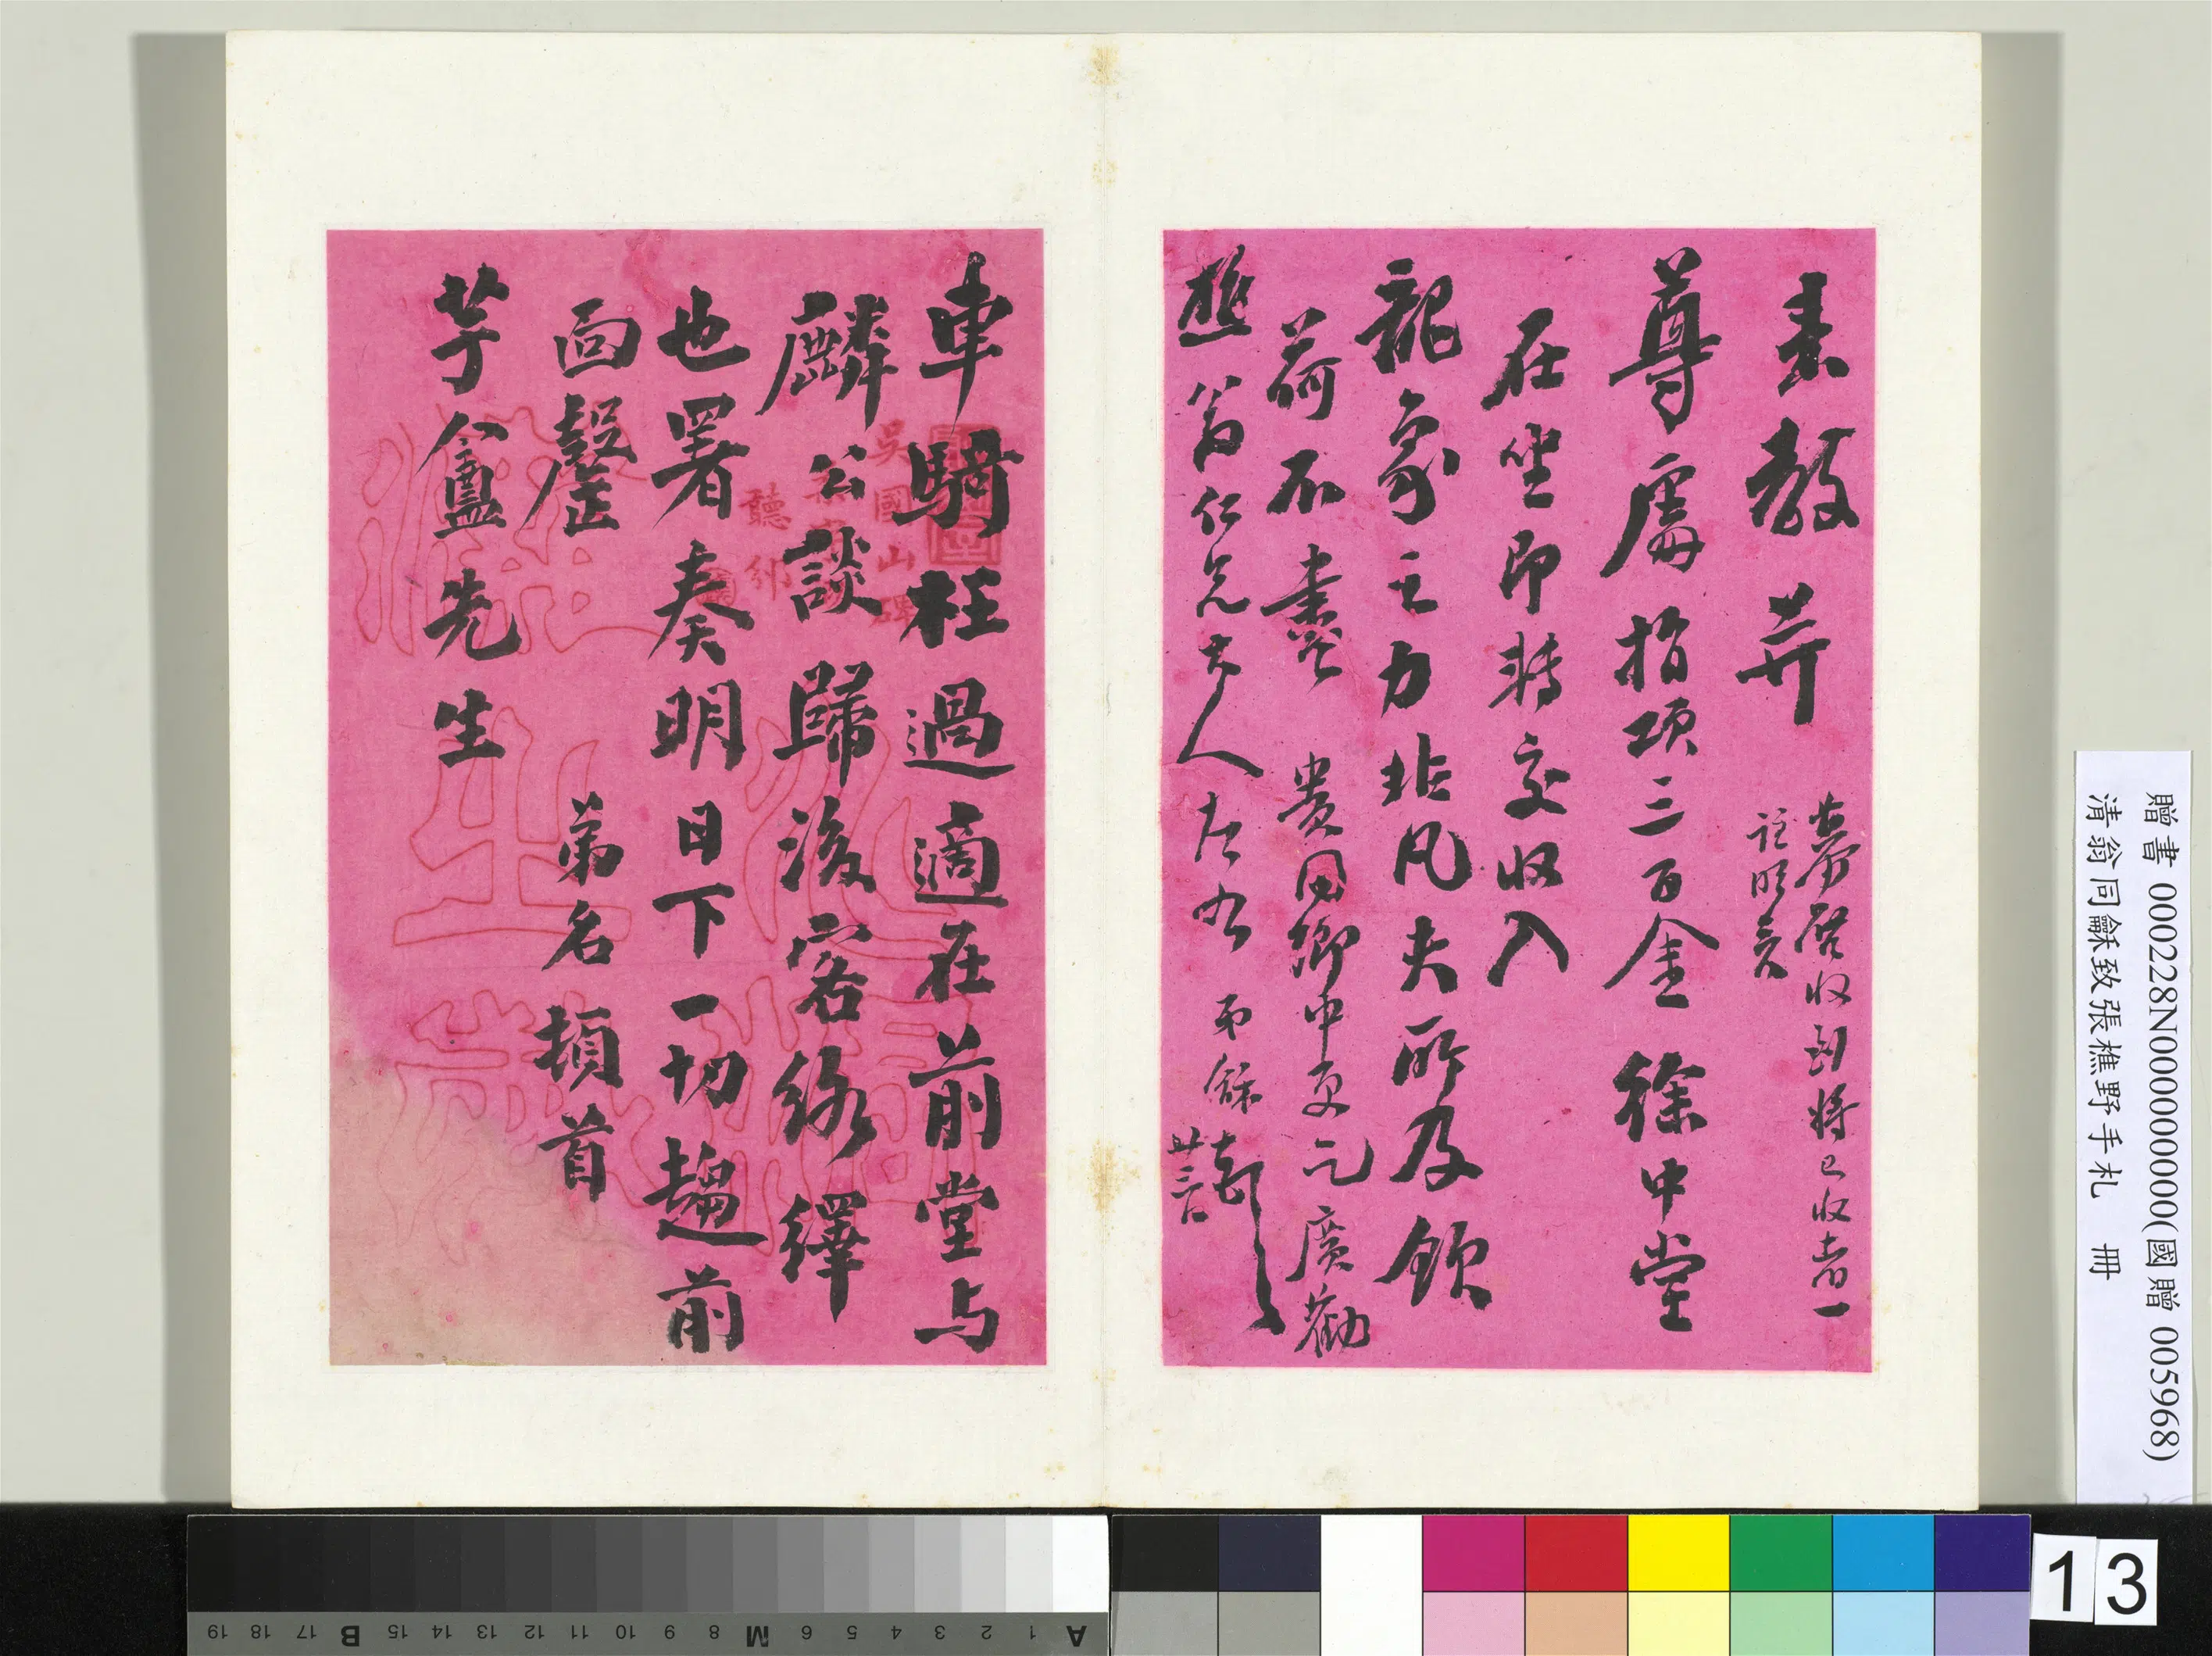 來教并
募啓收到將已收者一
註明矣
尊處指項三百金徐中堂
在坐即轉交收入
龍象之力非凡夫所及欽
荷不盡
貴同鄉中更乞廣勸
樵翁仁兄大人左右
弟龢
廿三日
車騎枉過適在前堂与
麟公談歸後客絡繹
也署奏明日下一切趨前
面罄
弟名頓首
芋盦先生
吳國山碑
聽邠
贈書 000228N000000000(國贈 005968)
清翁同龢致張樵野手札 冊
A 1 2 3 4 5 6 M 8 9 10 11 12 13 14 15 B 17 18 19
13